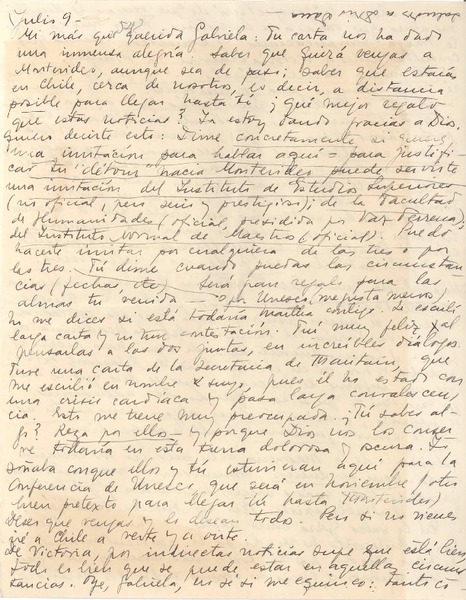 Julio 9-
Mi más que querida Gabriela: Tu carta nos ha dado
una inmensa alegría. Saber que quizá vengas a
Montevideo, aunque sea de paso; saber que estarás
en Chile, cerca de nosotros, es decir, a distancia
posible para llegar hasta ti ¡Qué mejor regalo
que estas noticias? Ya estoy dando gracias a Dios.
Quiero decirte esto: Dime concretamente si quieres
una invitación para hablar aquí = para justifi-
car tu "detour" hacia Montevideo puede servirte
una invitación del Instituto de Estudios Superiores
(no oficial, pero serio y prestigioso); de la Facultad
de Humanidades (oficial, presidida por Vaz Ferreira);
del Instituto Normal de Maestros (oficial). Puedo
hacerte invitar por cualquiera de las tres o por
las tres. Tú dime cuando puedas las circunstan-
cias (fechas, etc) Será gran regalo para las
almas tu venida — o por Unesco
No me dices si está todavía Martha contigo. Le escribí
larga carta y no tuve contestación. Fui muy feliz al
pensarlas a las dos juntas, en increíbles diálogos.
Tuve una carta de la Secretaria de Maritain, que
me escribió en nombre suyo, pues él ha estado con
una crisis cardíaca y pasa larga convalecen-
cia. Esto me tiene muy preocupada. ¿Tú sabes al-
go? Reza por ellos — y porque Dios nos los conser-
ve todavía en esta tierra dolorosa y oscura. Yo
soñaba con que ellos y tú estuvieran aquí para la
Conferencia de Unesco que será en noviembre (otro
buen pretexto para llegar tú hasta Montevideo)
Deseo que vengas y lo desean todos. Pero si no vienes
iré a Chile a verte y a oírte.
De Victoria, por indirectas noticias supe que está bien
todo lo bien que se puede estar en aquellas circuns-
tancias. Oye, Gabriela, no sé si me equivoco: